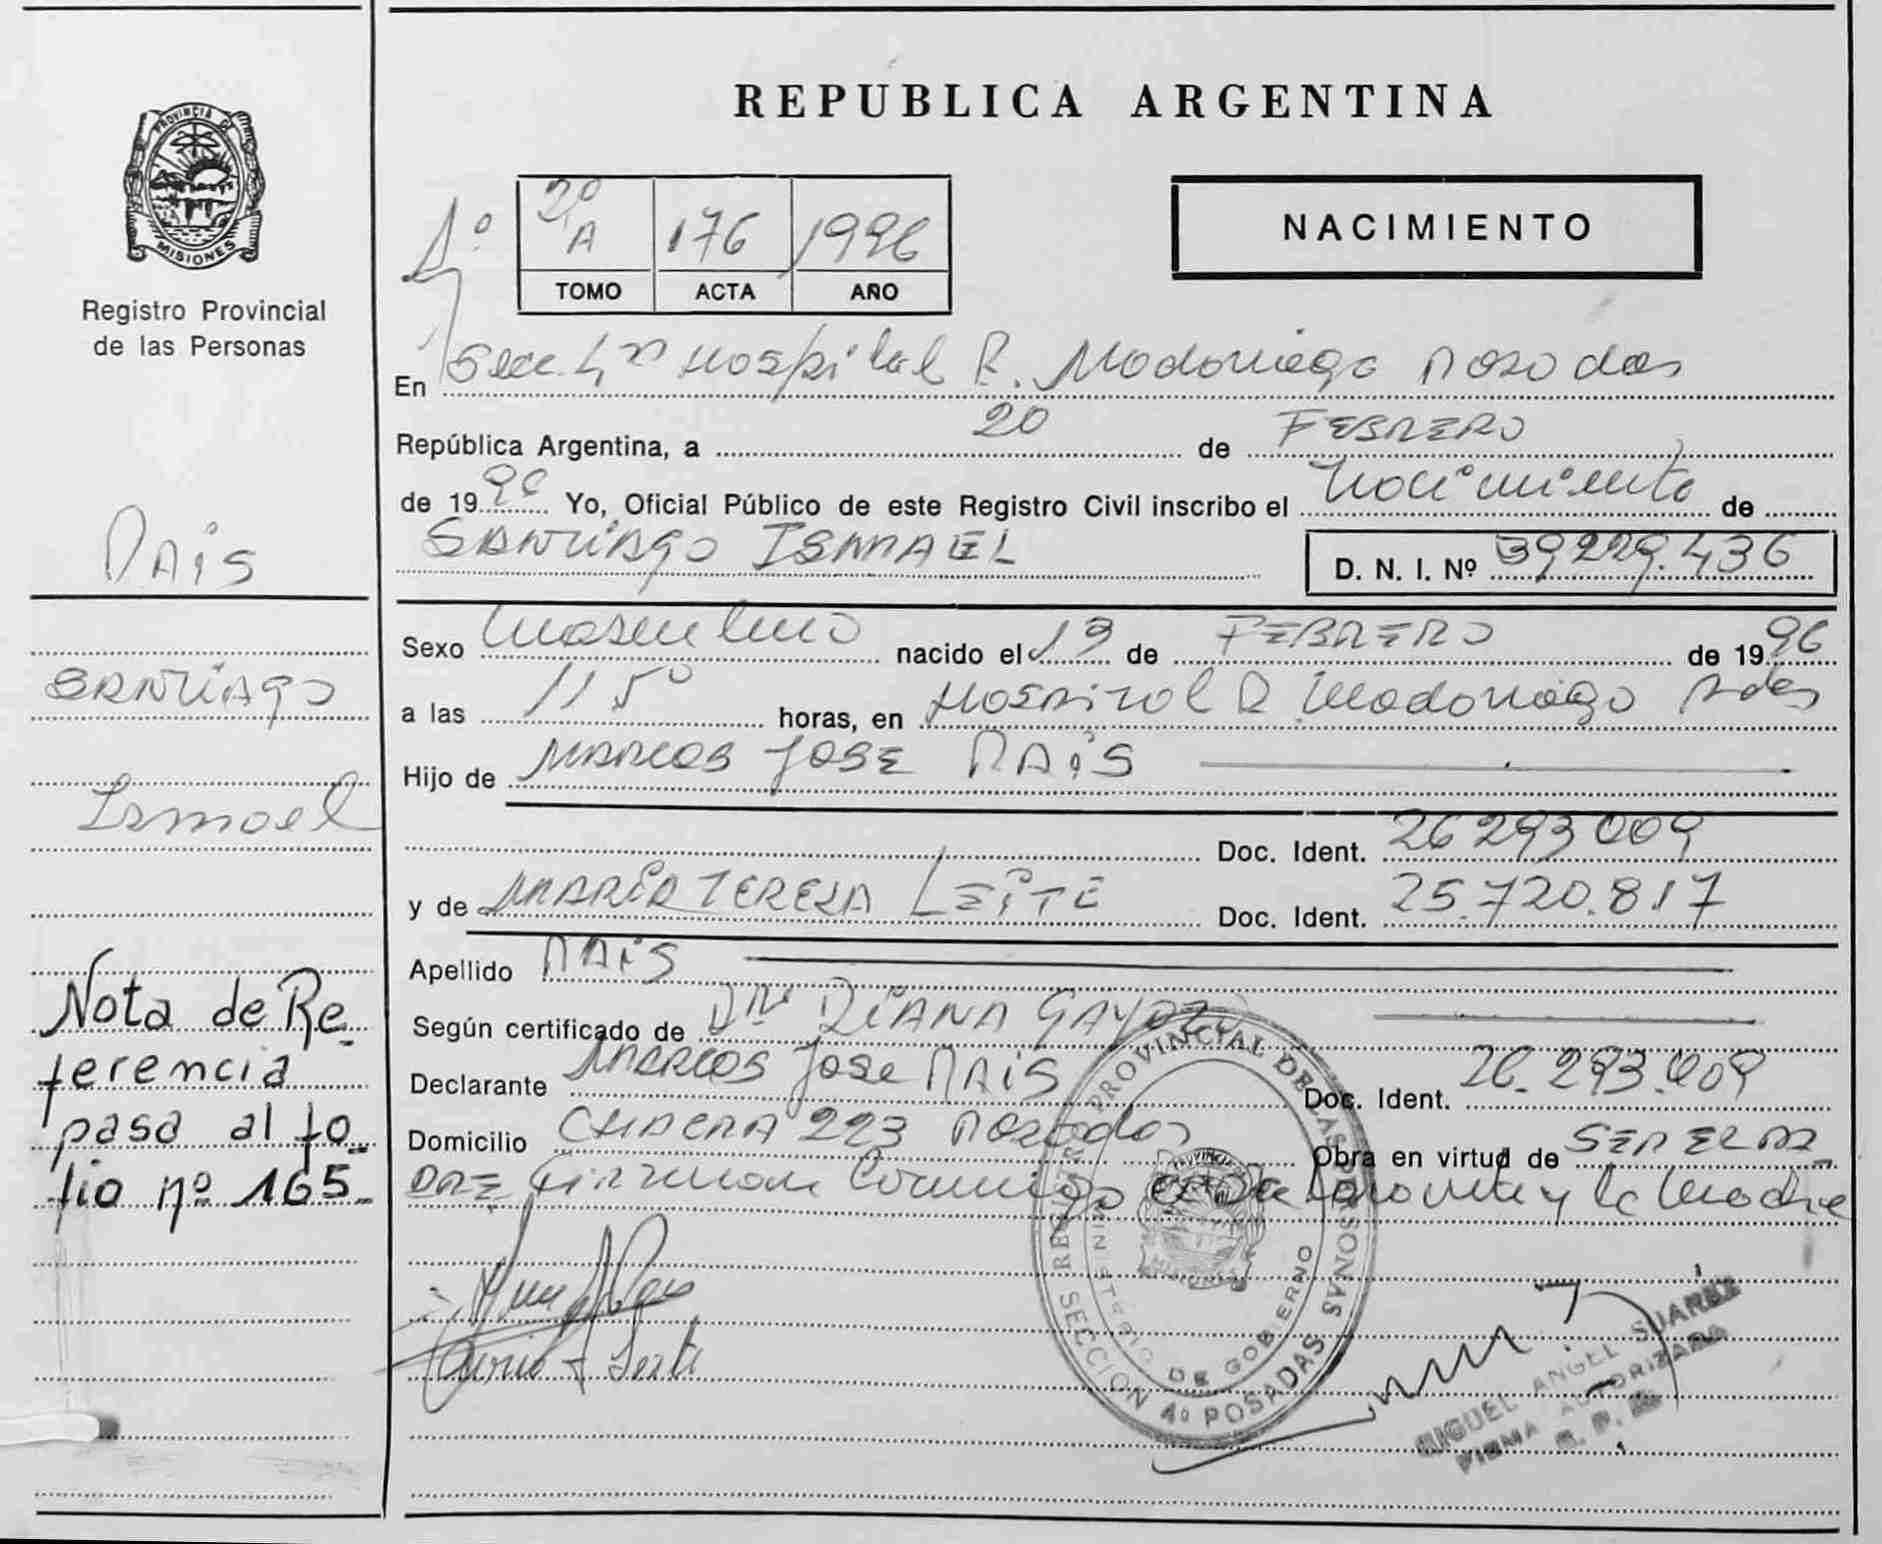 PROVINCIA DE
MISIONES
Registro Provincial
de las Personas
REPUBLICA ARGENTINA
NACIMIENTO
1º
2º A 176 1996
TOMO ACTA AÑO
En Secc. 4ª Hospital R. Madariaga Posadas
República Argentina, a 20 de FEBRERO
de 1996 Yo, Oficial Público de este Registro Civil inscribo el Nacimiento de
SANTIAGO ISMAEL D. N. I. Nº 39229.436
Sexo Masculino nacido el 13 de FEBRERO de 1996
a las 11 5º horas, en Hospital R Madariaga Pdas
Hijo de MARCOS JOSE PAIS
Doc. Ident. 26 293 009
y de MARIA TERESA LEITE Doc. Ident. 25.720.817
Apellido PAIS
Según certificado de Dra DIANA GAYOZO
Declarante MARCOS JOSE PAIS Doc. Ident. 26.293.009
Domicilio CHACRA 223 Posadas Obra en virtud de SER EL PA-
DRE Firman Conmigo el Declarante y la Madre
PAIS
SANTIAGO
Ismael
Nota de Re-
ferencia
pasa al fo-
lio nº 165-
REGISTRO PROVINCIAL DE LAS PERSONAS
MINISTERIO DE GOBIERNO
PROVINCIA
MISIONES
SECCION 4º POSADAS
MIGUEL ANGEL SUAREZ
FIRMA AUTORIZADA
R. P. P.